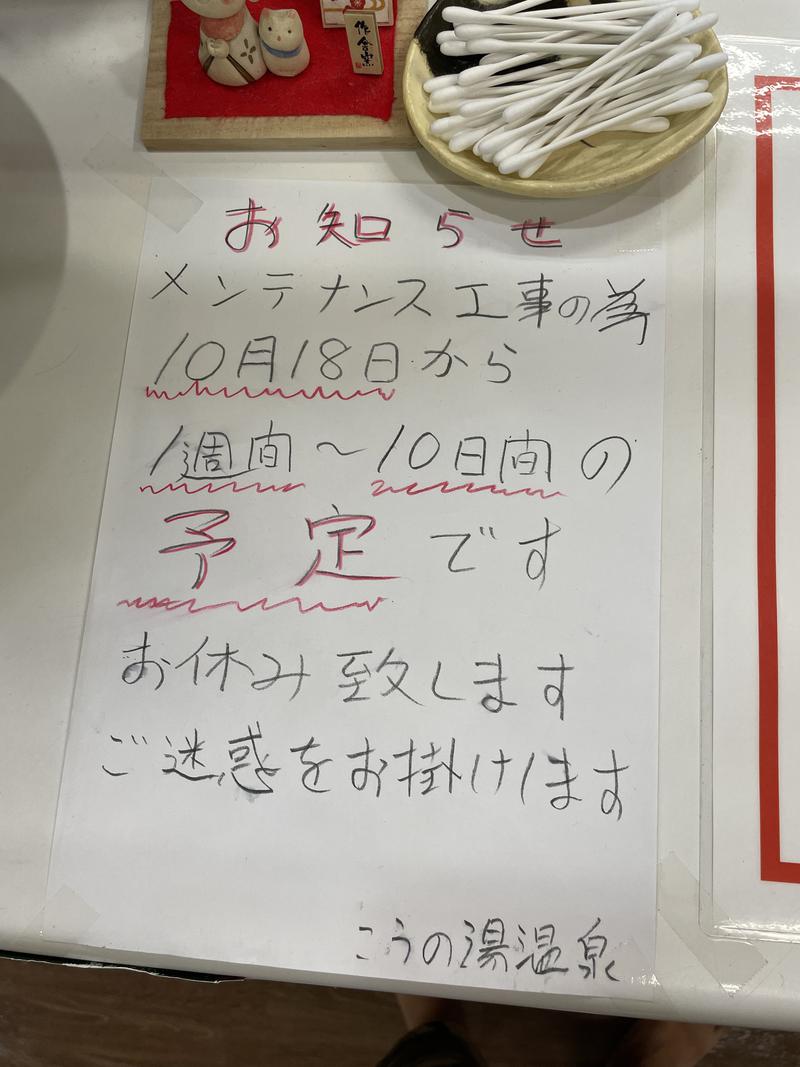 作金窯
お知らせ
メンテナンス工事の為
10月18日から
1週間～10日間の
予定です
お休み致します
ご迷惑をお掛けします
こうの湯温泉